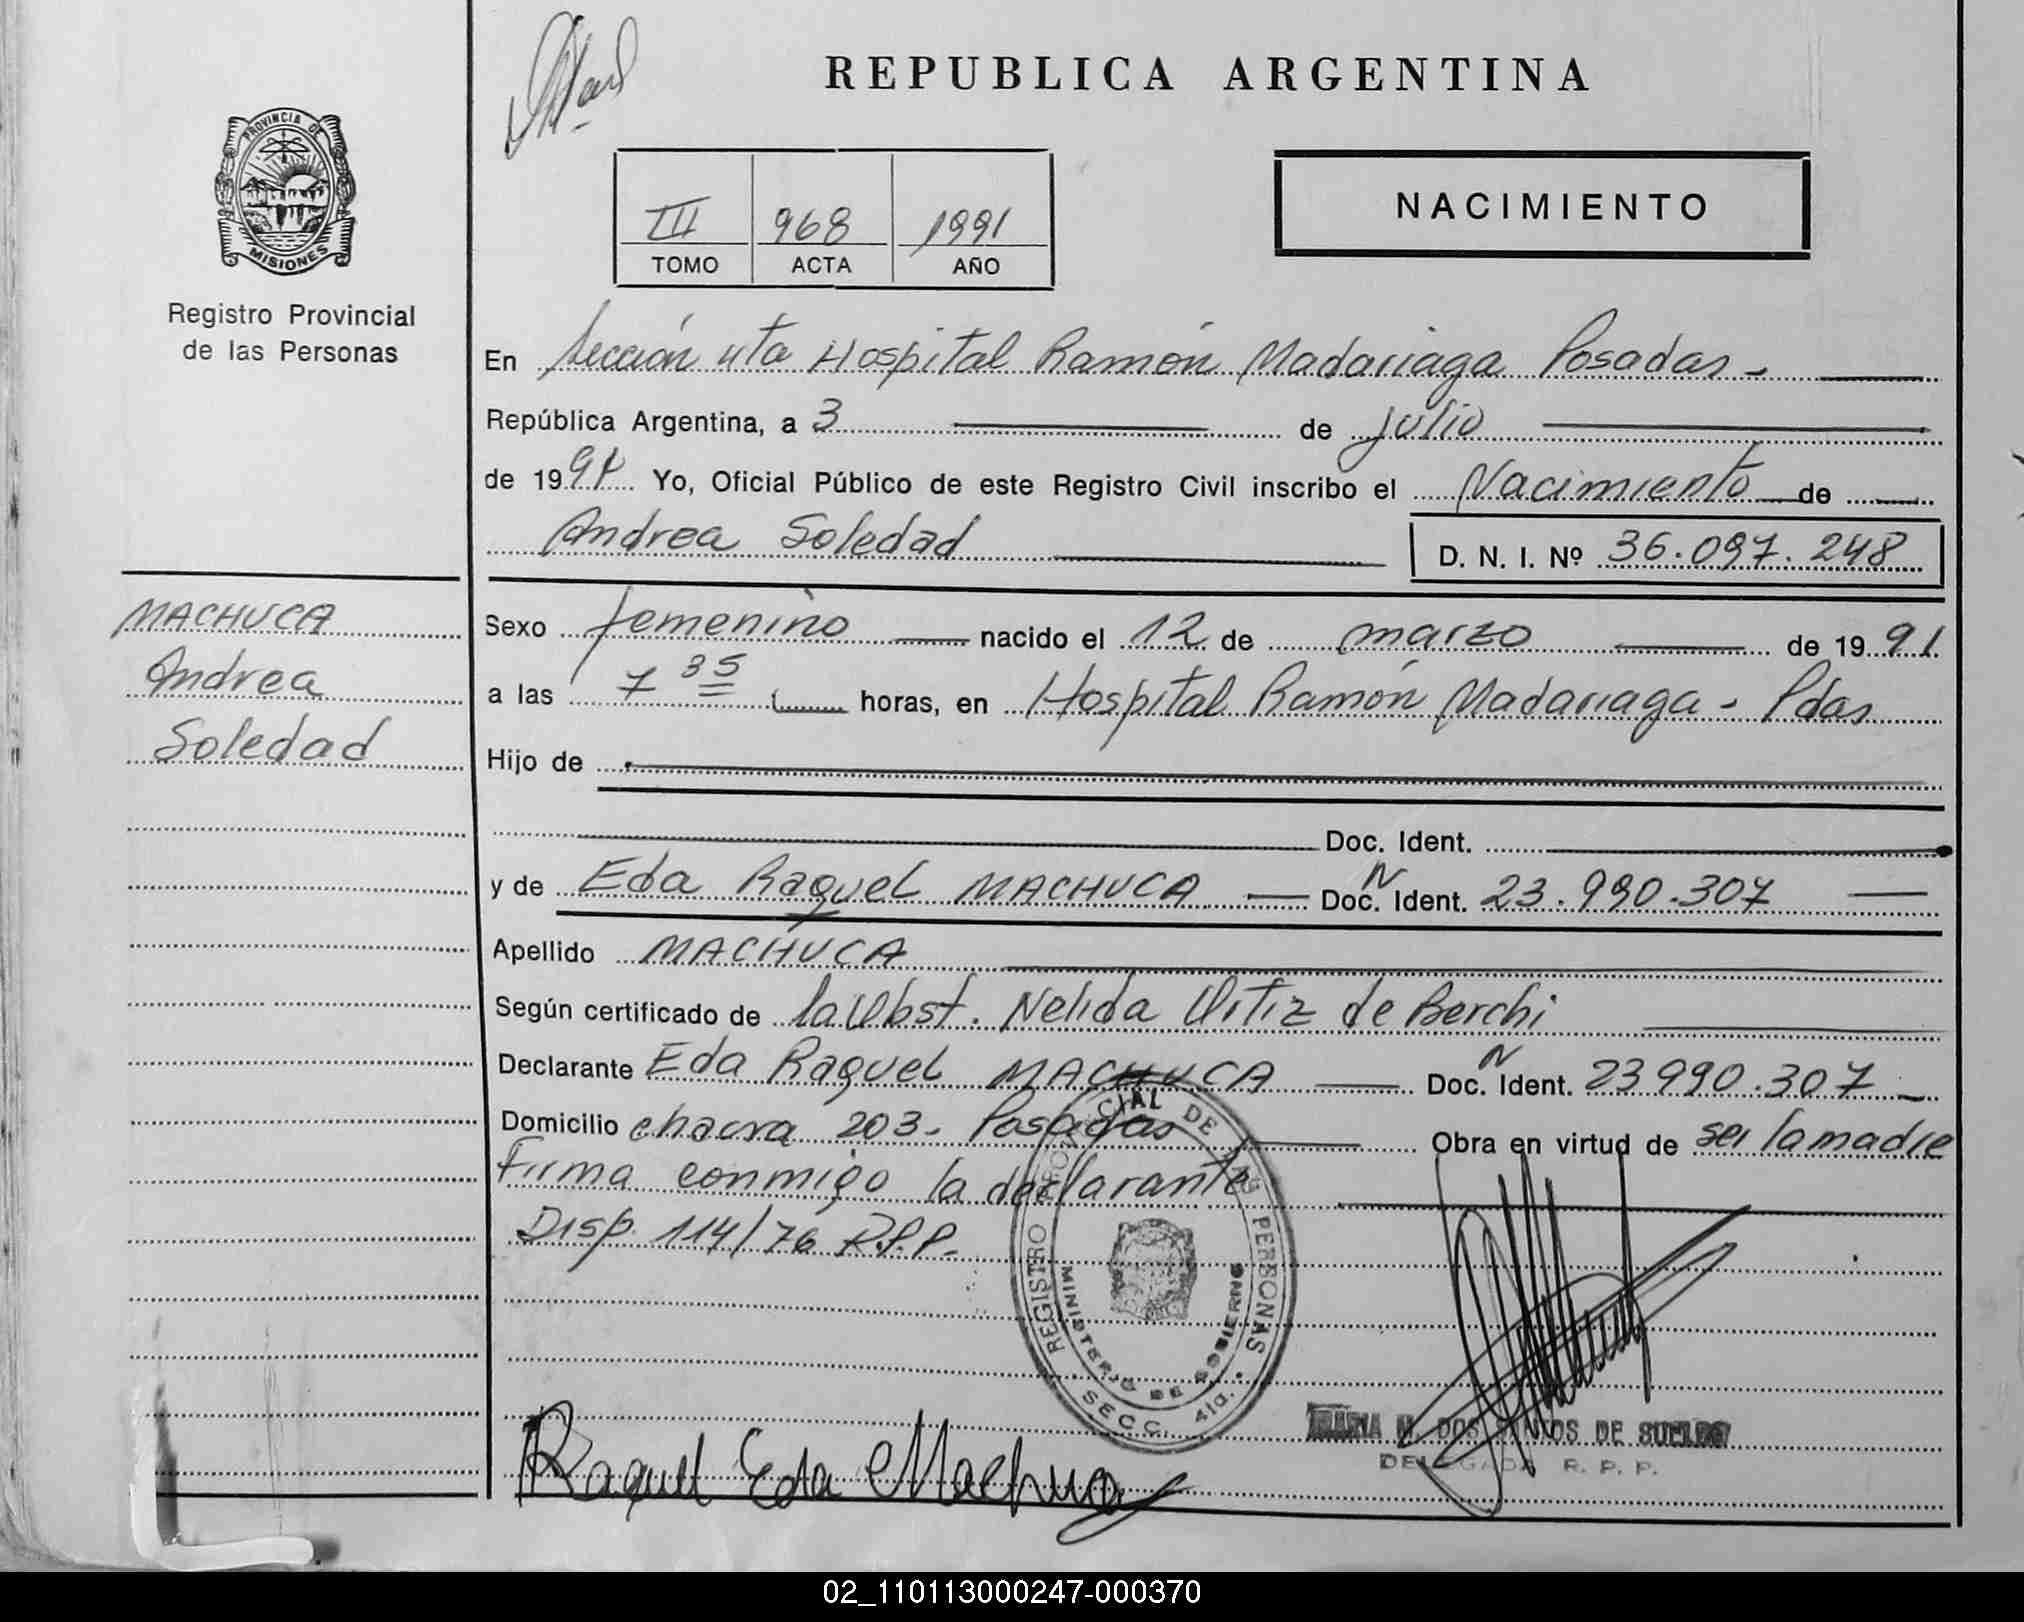 REPUBLICA ARGENTINA
PROVINCIA DE
MISIONES
Registro Provincial
de las Personas
III 968 1991
TOMO ACTA AÑO
NACIMIENTO
En Sección 4ta Hospital Ramón Madariaga Posadas -
República Argentina, a 3 de julio
de 1991 Yo, Oficial Público de este Registro Civil inscribo el Nacimiento de
Andrea Soledad D. N. I. Nº 36.097.248
MACHUCA
Andrea
Soledad
Sexo femenino nacido el 12 de marzo de 1991
a las 7 35 horas, en Hospital Ramón Madariaga - Pdas
Hijo de
Doc. Ident.
y de Eda Raquel MACHUCA Doc. N Ident. 23.990.307
Apellido MACHUCA
Según certificado de la Obst. Nelida Ortiz de Berchi
Declarante Eda Raquel MACHUCA Doc. N Ident. 23990.307
Domicilio chacra 203- Posadas Obra en virtud de ser la madre
Firma conmigo la declarante
Disp. 114/76 R.P.P.
REGISTRO PROVINCIAL DE LAS PERSONAS
MINISTERIO DE GOBIERNO
SECC. 4ta.
Raquel Eda Machuca
MARIA M. DOS SANTOS DE
DELEGADA R. P. P.
02_110113000247-000370